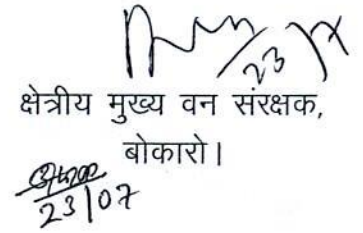 23/7
क्षेत्रीय मुख्य वन संरक्षक,
बोकारो।
23/07